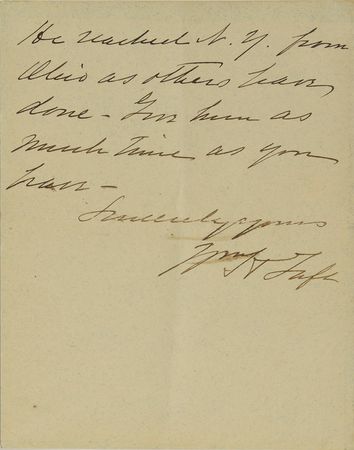 He reached N. Y. from
Ohio as others have
done - Give him as
much time as you
have -
Sincerely yours
Wm H Taft